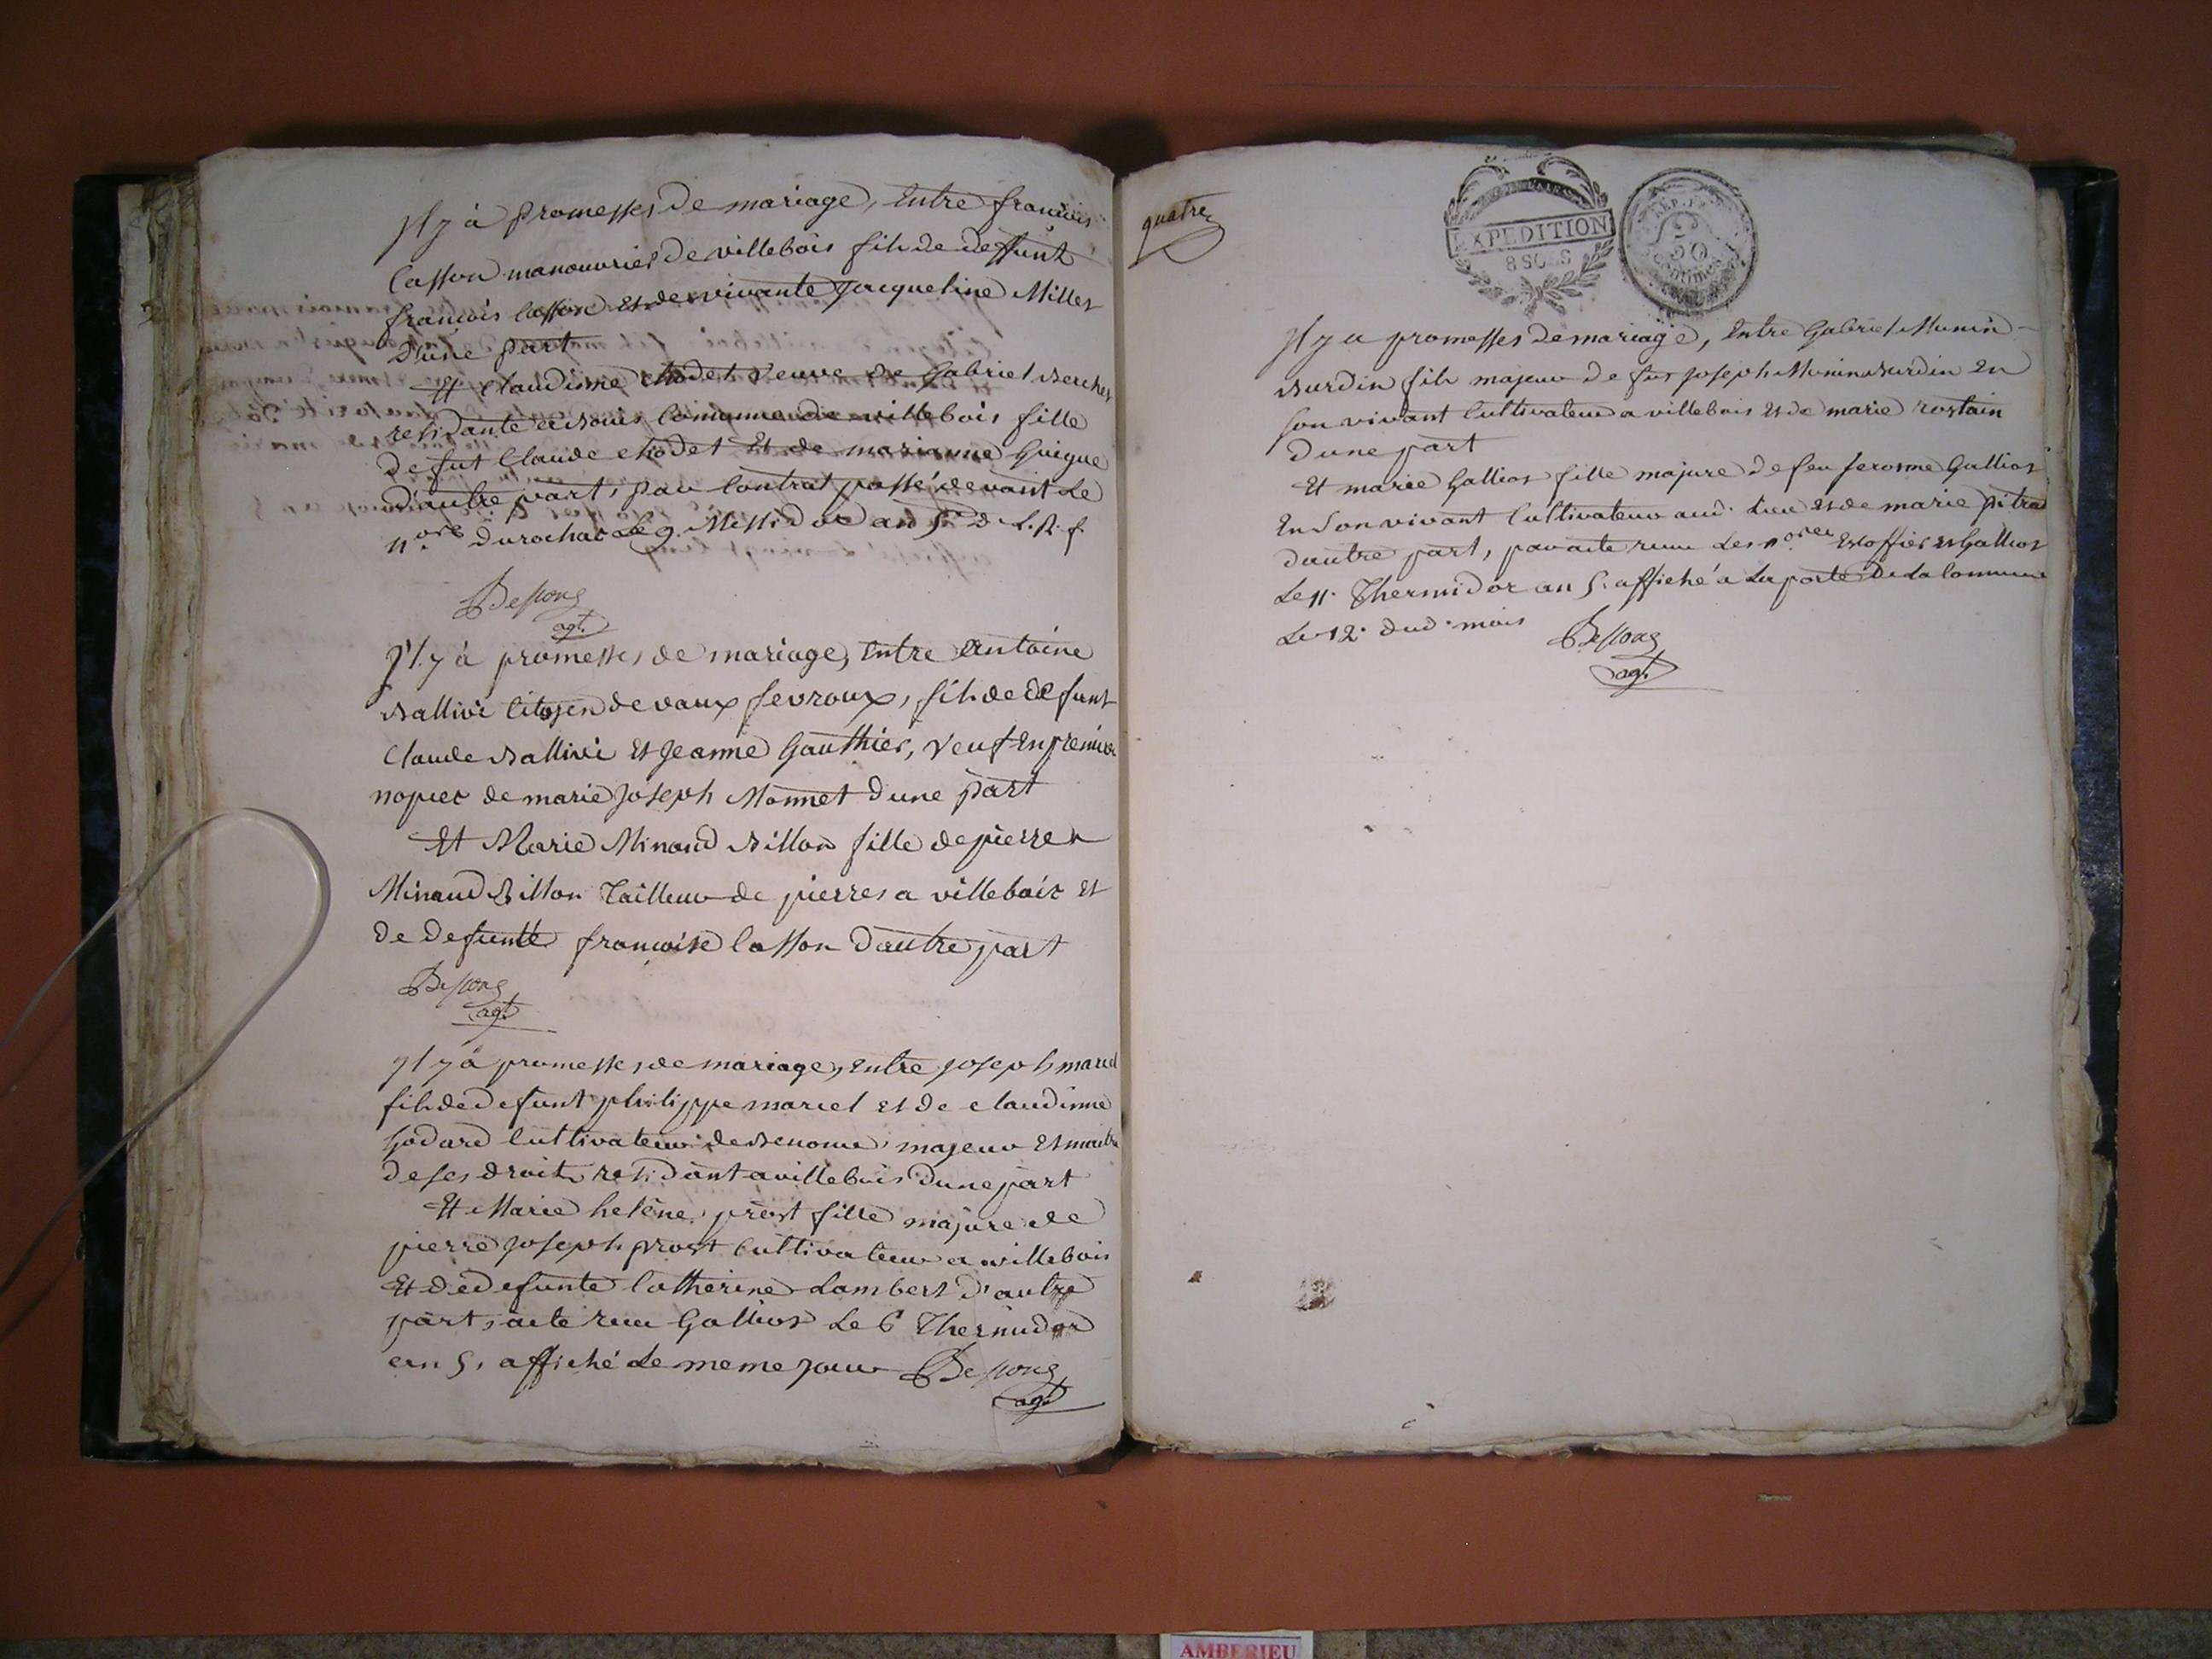 Il y à promesses de mariage, Entre francois
Casson manouvrier de villebois fils de deffunt
francois Casson et de vivante Jacqueline Millet
d'une part
Et Claudinne chodet veuve de Gabriel Bercher
residante a Bouis Commune de villebois fille
de fut Claude chodet Et de marianne Guigue
d'autre part, par Contrat passé devant Le
n.ore Durochat Le 9. Messidor an 5.e d. L. R. f.
Bessong
agt.
Il y à promesses de mariage, Entre Antoine
Ballivi Citoyen de vaux fevroux, fils de defunt
Claude Ballivi et Jeanne Gauthier, veuf En premier
nopces de marie Joseph Monnet d'une part
Et Marie Minaud Billon fille de pierre
Minaud Billon Tailleur de pierres a villebois et
de defunte francoise Casson d'autre part
Bessong
agt.
Il y à promesses de mariage, Entre Joseph marcel
fils de defunt philippe marcel et de claudinne
Godard Cultivateur de Benonce, majeur Et maitre
de ses droits residant a villebois d'une part
Et Marie helène prost fille majure de
pierre Joseph prost Cultivateur a villebois
Et de defunte Catherine Lambert d'autre
part, acte recu Galliot Le 6 Thermidor
an 5. affiché Le meme jour Bessong
agt.
quatre
EXPEDITION
8 SOLS
REP. FRA.
50
centimes
Il y a promesses de mariage, Entre Gabriel Munin
Burdin fils majeur de fut Joseph Munin Burdin En
son vivant Cultivateur a villebois Et de marie rostain
d'une part
Et marie Galliot fille majure de feu Jerosme Galliot
En Son vivant Cultivateur aud. Lieu Et de marie pitra
d'autre part, par acte recu Les n.ores Escoffier Et Galliot
Le 11. Thermidor an 5. affiché a La porte De La Commune
Le 12. dud. mois
Bessong
agt.
AMBERIEU